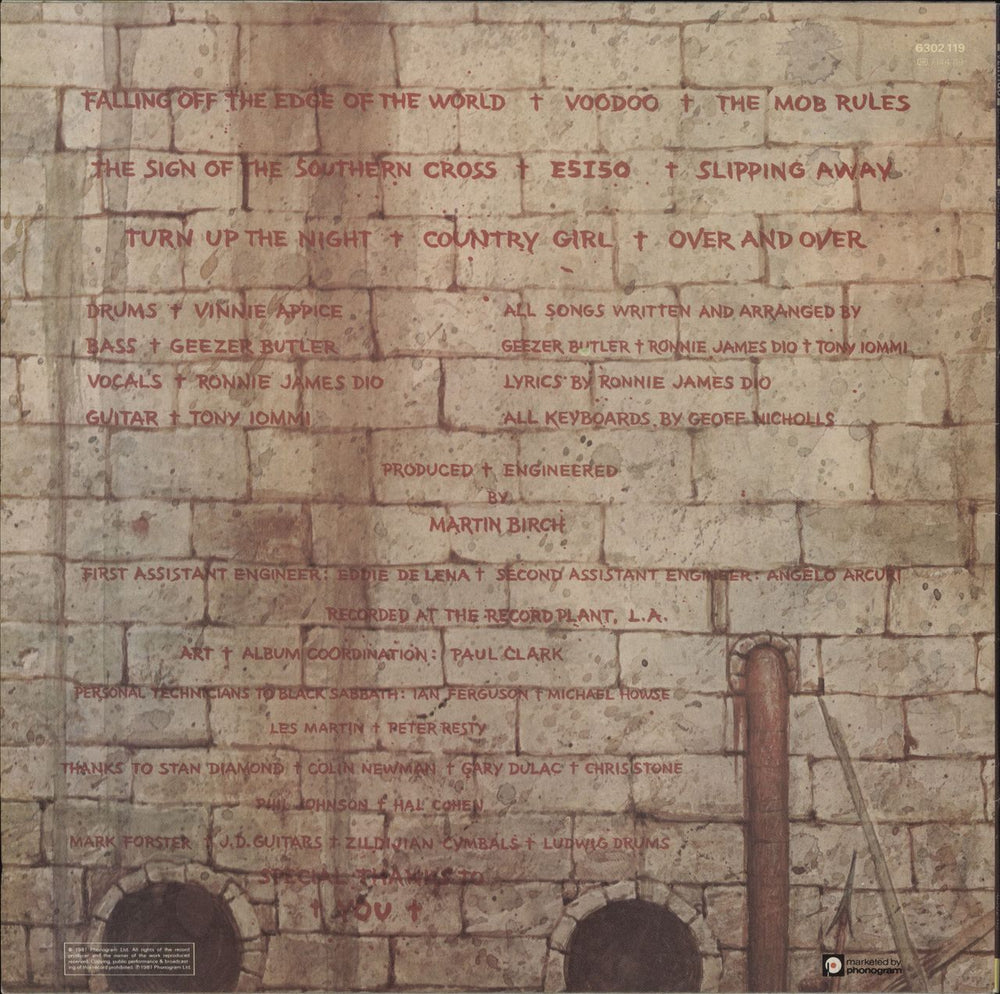 6302 119
FALLING OFF THE EDGE OF THE WORLD † VOODOO † THE MOB RULES
THE SIGN OF THE SOUTHERN CROSS † E5I50 † SLIPPING AWAY
TURN UP THE NIGHT † COUNTRY GIRL † OVER AND OVER
DRUMS † VINNIE APPICE
BASS † GEEZER BUTLER
VOCALS † RONNIE JAMES DIO
GUITAR † TONY IOMMI
ALL SONGS WRITTEN AND ARRANGED BY
GEEZER BUTLER † RONNIE JAMES DIO † TONY IOMMI
LYRICS BY RONNIE JAMES DIO
ALL KEYBOARDS BY GEOFF NICHOLLS
PRODUCED † ENGINEERED
BY
MARTIN BIRCH
FIRST ASSISTANT ENGINEER: EDDIE DE LENA † SECOND ASSISTANT ENGINEER: ANGELO ARCURI
RECORDED AT THE RECORD PLANT, L.A.
ART † ALBUM COORDINATION: PAUL CLARK
PERSONAL TECHNICIANS TO BLACK SABBATH: IAN FERGUSON † MICHAEL HOWSE
LES MARTIN † PETER RESTY
THANKS TO STAN DIAMOND † COLIN NEWMAN † GARY DULAC † CHRIS STONE
PHIL JOHNSON † HAL COHEN
MARK FORSTER † J.D. GUITARS † ZILDIJIAN CYMBALS † LUDWIG DRUMS
SPECIAL THANKS TO
† YOU †
℗ 1981 Phonogram Ltd. All rights of the record
producer and the owner of the work reproduced
reserved. Copying, public performance & broadcast-
ing of this record prohibited. ℗ 1981 Phonogram Ltd.
marketed by
phonogram